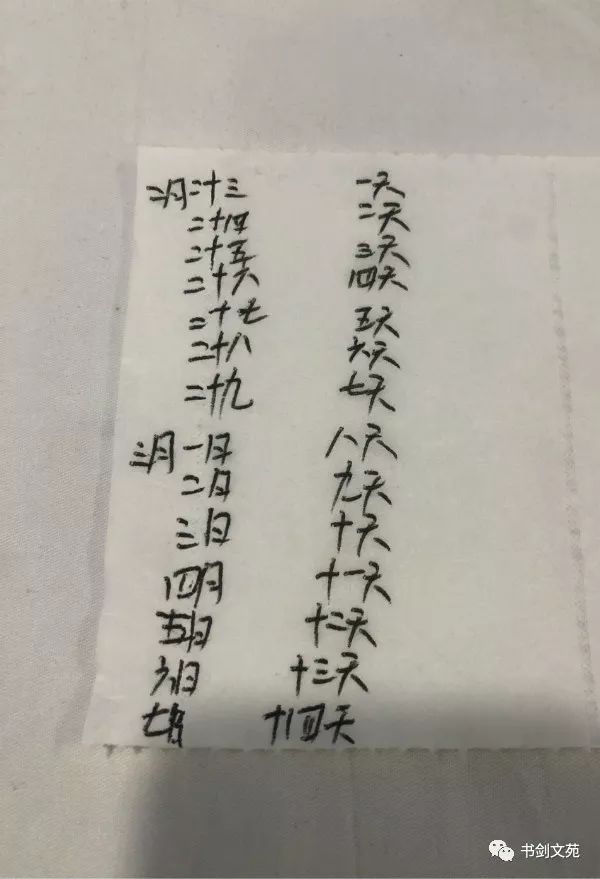 二月二十三 一天
二十四 二天
二十五 三天
二十六 四天
二十七 五天
二十八 六天
二十九 七天
三月一日 八天
二日 九天
三日 十天
四月 十一天
五日 十二天
六日 十三天
七 十四天
书剑文苑